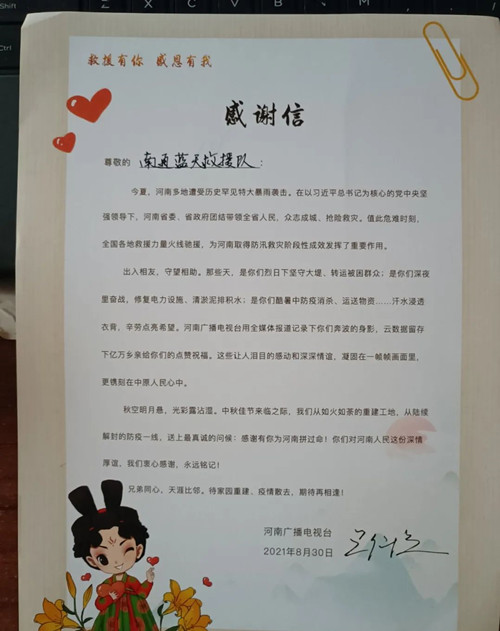 救援有你 感恩有我
感谢信
尊敬的 南通蓝天救援队：
今夏，河南多地遭受历史罕见特大暴雨袭击。在以习近平总书记为核心的党中央坚
强领导下，河南省委、省政府团结带领全省人民、众志成城、抢险救灾。值此危难时刻，
全国各地救援力量火线驰援，为河南取得防汛救灾阶段性成效发挥了重要作用。
出入相友，守望相助。那些天，是你们烈日下坚守大堤、转运被困群众；是你们深夜
里奋战，修复电力设施、清淤泥排积水；是你们酷暑中防疫消杀、运送物资……汗水浸透
衣背，辛劳点亮希望。河南广播电视台用全媒体报道记录下你们奔波的身影，云数据留存
下亿万乡亲给你们的点赞祝福。这些让人泪目的感动和深深情谊，凝固在一帧帧画面里，
更镌刻在中原人民心中。
秋空明月悬，光彩露沾湿。中秋佳节来临之际，我们从如火如荼的重建工地，从陆续
解封的防疫一线，送上最真诚的问候：感谢有你为河南拼过命！你们对河南人民这份深情
厚谊，我们衷心感谢，永远铭记！
兄弟同心，天涯比邻。待家园重建，疫情散去，期待再相逢！
河南广播电视台
2021年8月30日
Shift
Ctrl